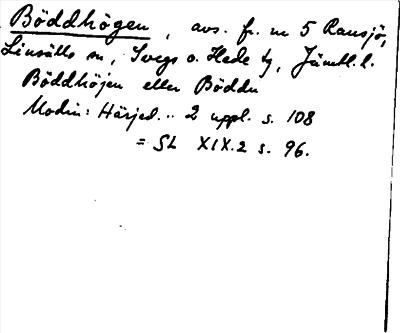 Böddhögen, avs. fr. nr 5 Ransjö,
Linsälls sn, Svegs o. Hede tg, Jämtl. l.
Böddhöjen eller Böddn
Modin: Härjed... 2 uppl. s. 108
= SL XIX.2 s. 96.